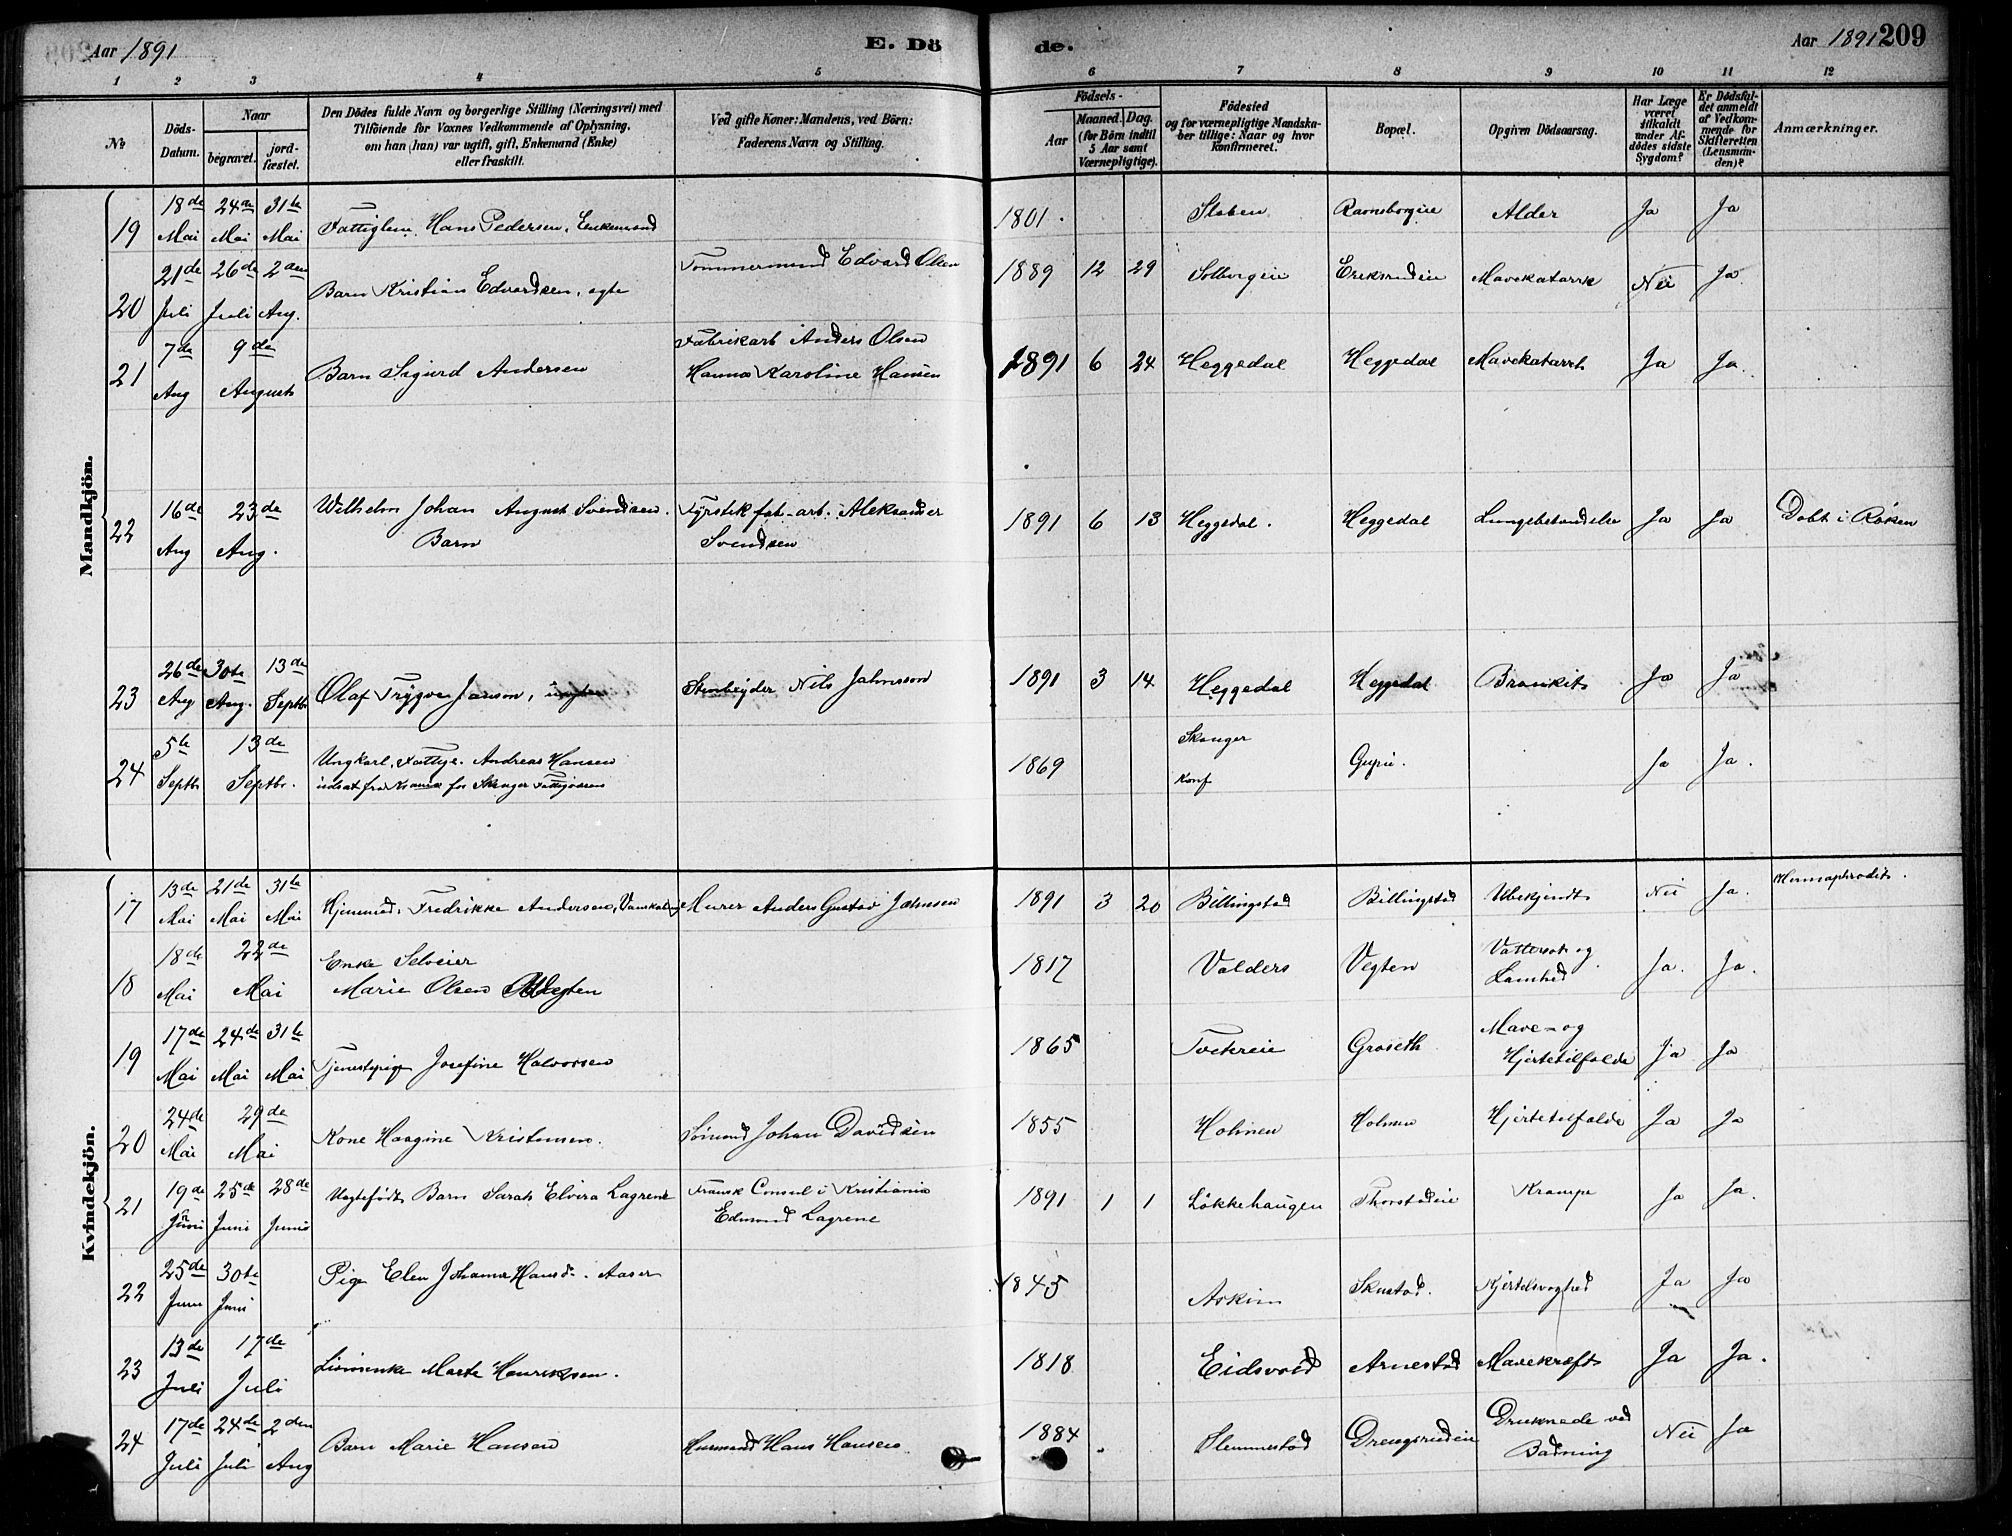 Aar 1891
E. Dö
de.
Aar 1891 209
1 2 3 4 5 6 7 8 9 10 11 12
No
Döds-Datum.
Naar
begravet.
jord-fæstet.
Den Dödes fulde Navn og borgerlige Stilling (Næringsvei) med
Tilföiende for Voxnes Vedkommende af Oplysning,
om han (hun) var ugift, gift, Enkemand (Enke)
eller fraskilt.
Ved gifte Koner: Mandens, ved Börn:
Faderens Navn og Stilling.
Födsels-
Aar
Maaned. Dag.
(for Börn indtil
5 Aar samt
Værnepligtige).
Födested
og for værnepligtige Mandska-
ber tillige: Naar og hvor
konfirmeret.
Bopæl.
Opgiven Dödsaarsag.
Har Læge
været
tilkaldt
under Af-
dödes sidste
Sygdom?
Er Dödsfal-
det anmeldt
af Vedkom-
mende for
Skifteretten
(Lensman-
den)?
Anmærkninger.
Mandkjön.
19 18de Mai 24de Mai 31te Mai Fattiglem Hans Pedersen, Enkemand 1801. Staben Ravnsborgeie Alder Ja Ja
20 21de Juli 26de Juli 2den Aug. Barn Kristian Edvardsen, ægte Tømmermand Edvard Olsen 1889 12 29 Solbergeie Eriksrudeie Mavekatarrh Nei Ja
21 7de Aug 9de August Barn Sigurd Andersen Fabrikarb Anders Olsen
Hanna Karoline Hansen 1891 6 24 Heggedal Heggedal Mavekatarrh Ja Ja.
22 16de Aug 23de Aug. Wilhelm Johan August Svendsen.
Barn Fyrstikfab-arb. Aleksander
Svendsen 1891 6 13 Heggedal. Heggedal Lungebetændelse Ja Ja Døbt i Røken
23 26de Aug 30te Aug. 13de Septb Olaf Trygve Janson, Stenbeijder Nils Jahnsson 1891 3 14 Heggedal Heggedal Bronkit Ja Ja
24 5te Septb 13de Septbr. Ungkarl, Fattigl. Andreas Hansen
udsat fra Asker for Skauger Fattigvæsen 1869 Skauger
Konf Gupu. Ja Ja.
Kvindekjön.
17 13de Mai 21de Mai 31te Mai Hjemmed. Fredrikke Andersen, Vanskabning Murer Anders Gustav Johnsen 1891 3 20 Billingstad Billingstad Ubekjendt Nei Ja. Hermaphrodit.
18 18de Mai 22de Mai Enke Selveier
Marie Olsen Vegten 1817 Valders Vegten Vattersot og
Lamhed Ja. Ja.
19 17de Mai 24de Mai 31te Mai Tjenestepige Josefine Halvorsen 1865 Tvetereie Groseth Mave- og
Hjertetilfælde Ja Ja
20 24de Mai 29de Mai Kone Haagine Kristensen. Sømand Johan Davidsen 1855 Holmen Holmen Hjertetilfælde Ja Ja
21 19de Juni 25de Juni 28de Juni Uægtefødt Barn Sarah Elvira Lagrene Fransk Consul i Kristiania
Edmond Lagrene 1891 1 1 Løkkehaugen Thorstadeie Krampe Ja Ja.
22 25de Juni 30te Juni Pige Elen Johanne Hansd. Aaser 1843 Askim Skustad. Kjertelsvaghed Ja Ja
23 13de Juli 17de Juli Lismenke Marte Henriksen. 1818 Eidsvold Arnestad Mavekræft Ja Ja.
24 17de Juli 24de Juli 2den Aug Barn Marie Hansen Husmand Hans Hansen. 1884 Slemmestad Drengsrudeie Druknede ved
Badning Nei Ja